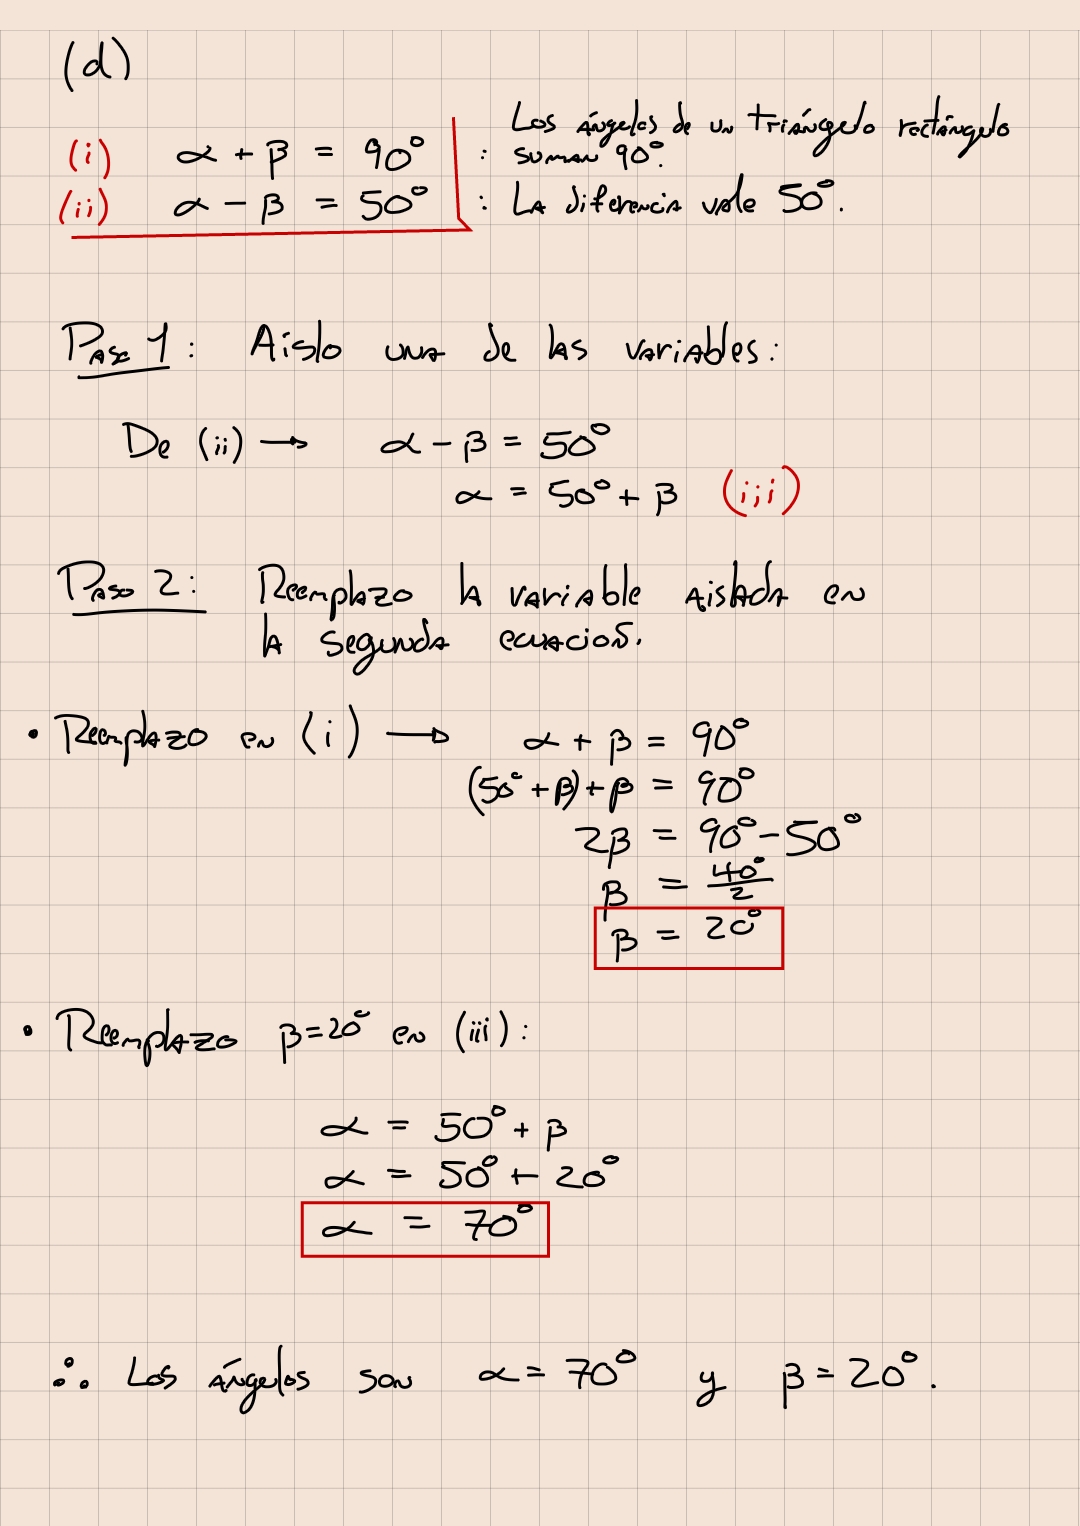 (d)
Los ángulos de un triángulo rectángulo
(i) α + β = 90° : suman 90°.
(ii) α - β = 50° : La diferencia vale 50°.
Paso 1: Aislo una de las variables:
De (ii) → α - β = 50°
α = 50° + β (iii)
Paso 2: Reemplazo la variable aislada en
la segunda ecuación.
• Reemplazo en (i) → α + β = 90°
(50° + β) + β = 90°
2β = 90° - 50°
β = 40°/2
β = 20°
• Reemplazo β = 20° en (iii):
α = 50° + β
α = 50° + 20°
α = 70°
∴ Los ángulos son α = 70° y β = 20°.